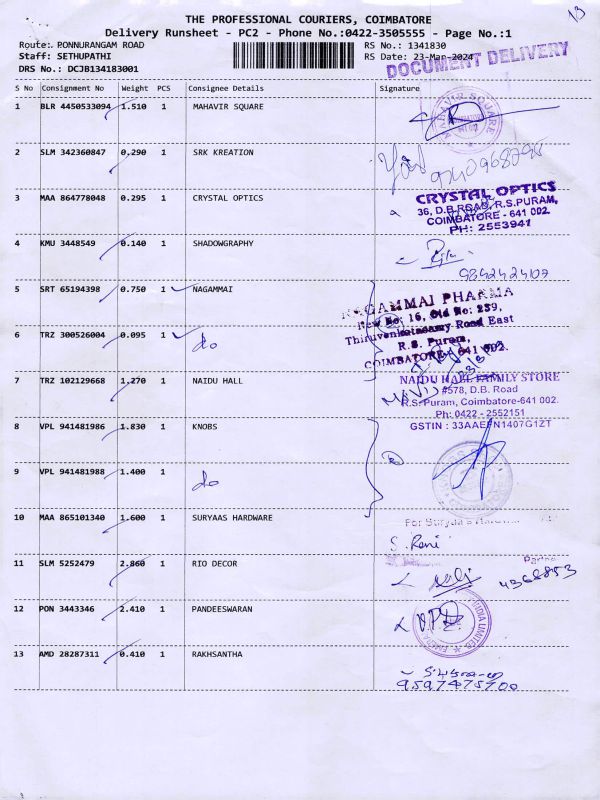 13
THE PROFESSIONAL COURIERS, COIMBATORE
Delivery Runsheet - PC2 - Phone No.:0422-3505555 - Page No.:1
Route: PONNURANGAM ROAD RS No.: 1341830
Staff: SETHUPATHI RS Date: 23-Mar-2024
DRS No.: DCJB134183001
DOCUMENT DELIVERY
S No Consignment No Weight PCS Consignee Details Signature
1 BLR 4450533094 1.510 1 MAHAVIR SQUARE
2 SLM 342360847 0.290 1 SRK KREATION
3 MAA 864778048 0.295 1 CRYSTAL OPTICS
CRYSTAL OPTICS
36, D.B.ROAD, R.S.PURAM,
COIMBATORE - 641 002.
PH: 2553941
4 KMU 3448549 0.140 1 SHADOWGRAPHY
9842424107
5 SRT 65194398 0.750 1 NAGAMMAI
NAGAMMAI PHARMA
New No: 16, Old No: 239,
Thiruvenkatasamy Road East
R.S. Puram,
COIMBATORE - 641 002.
6 TRZ 300526004 0.095 1 do
7 TRZ 102129668 1.270 1 NAIDU HALL
NAIDU HALL FAMILY STORE
#578, D.B. Road
R.S.Puram, Coimbatore-641 002.
Ph: 0422 - 2552151
GSTIN : 33AAEFN1407G1ZT
8 VPL 941481986 1.830 1 KNOBS
9 VPL 941481988 1.400 1 do
10 MAA 865101340 1.600 1 SURYAAS HARDWARE
For Suryaa's
S. Rani
11 SLM 5252479 2.860 1 RIO DECOR
12 PON 3443346 2.410 1 PANDEESWARAN
13 AMD 28287311 0.410 1 RAKHSANTHA
9597475700